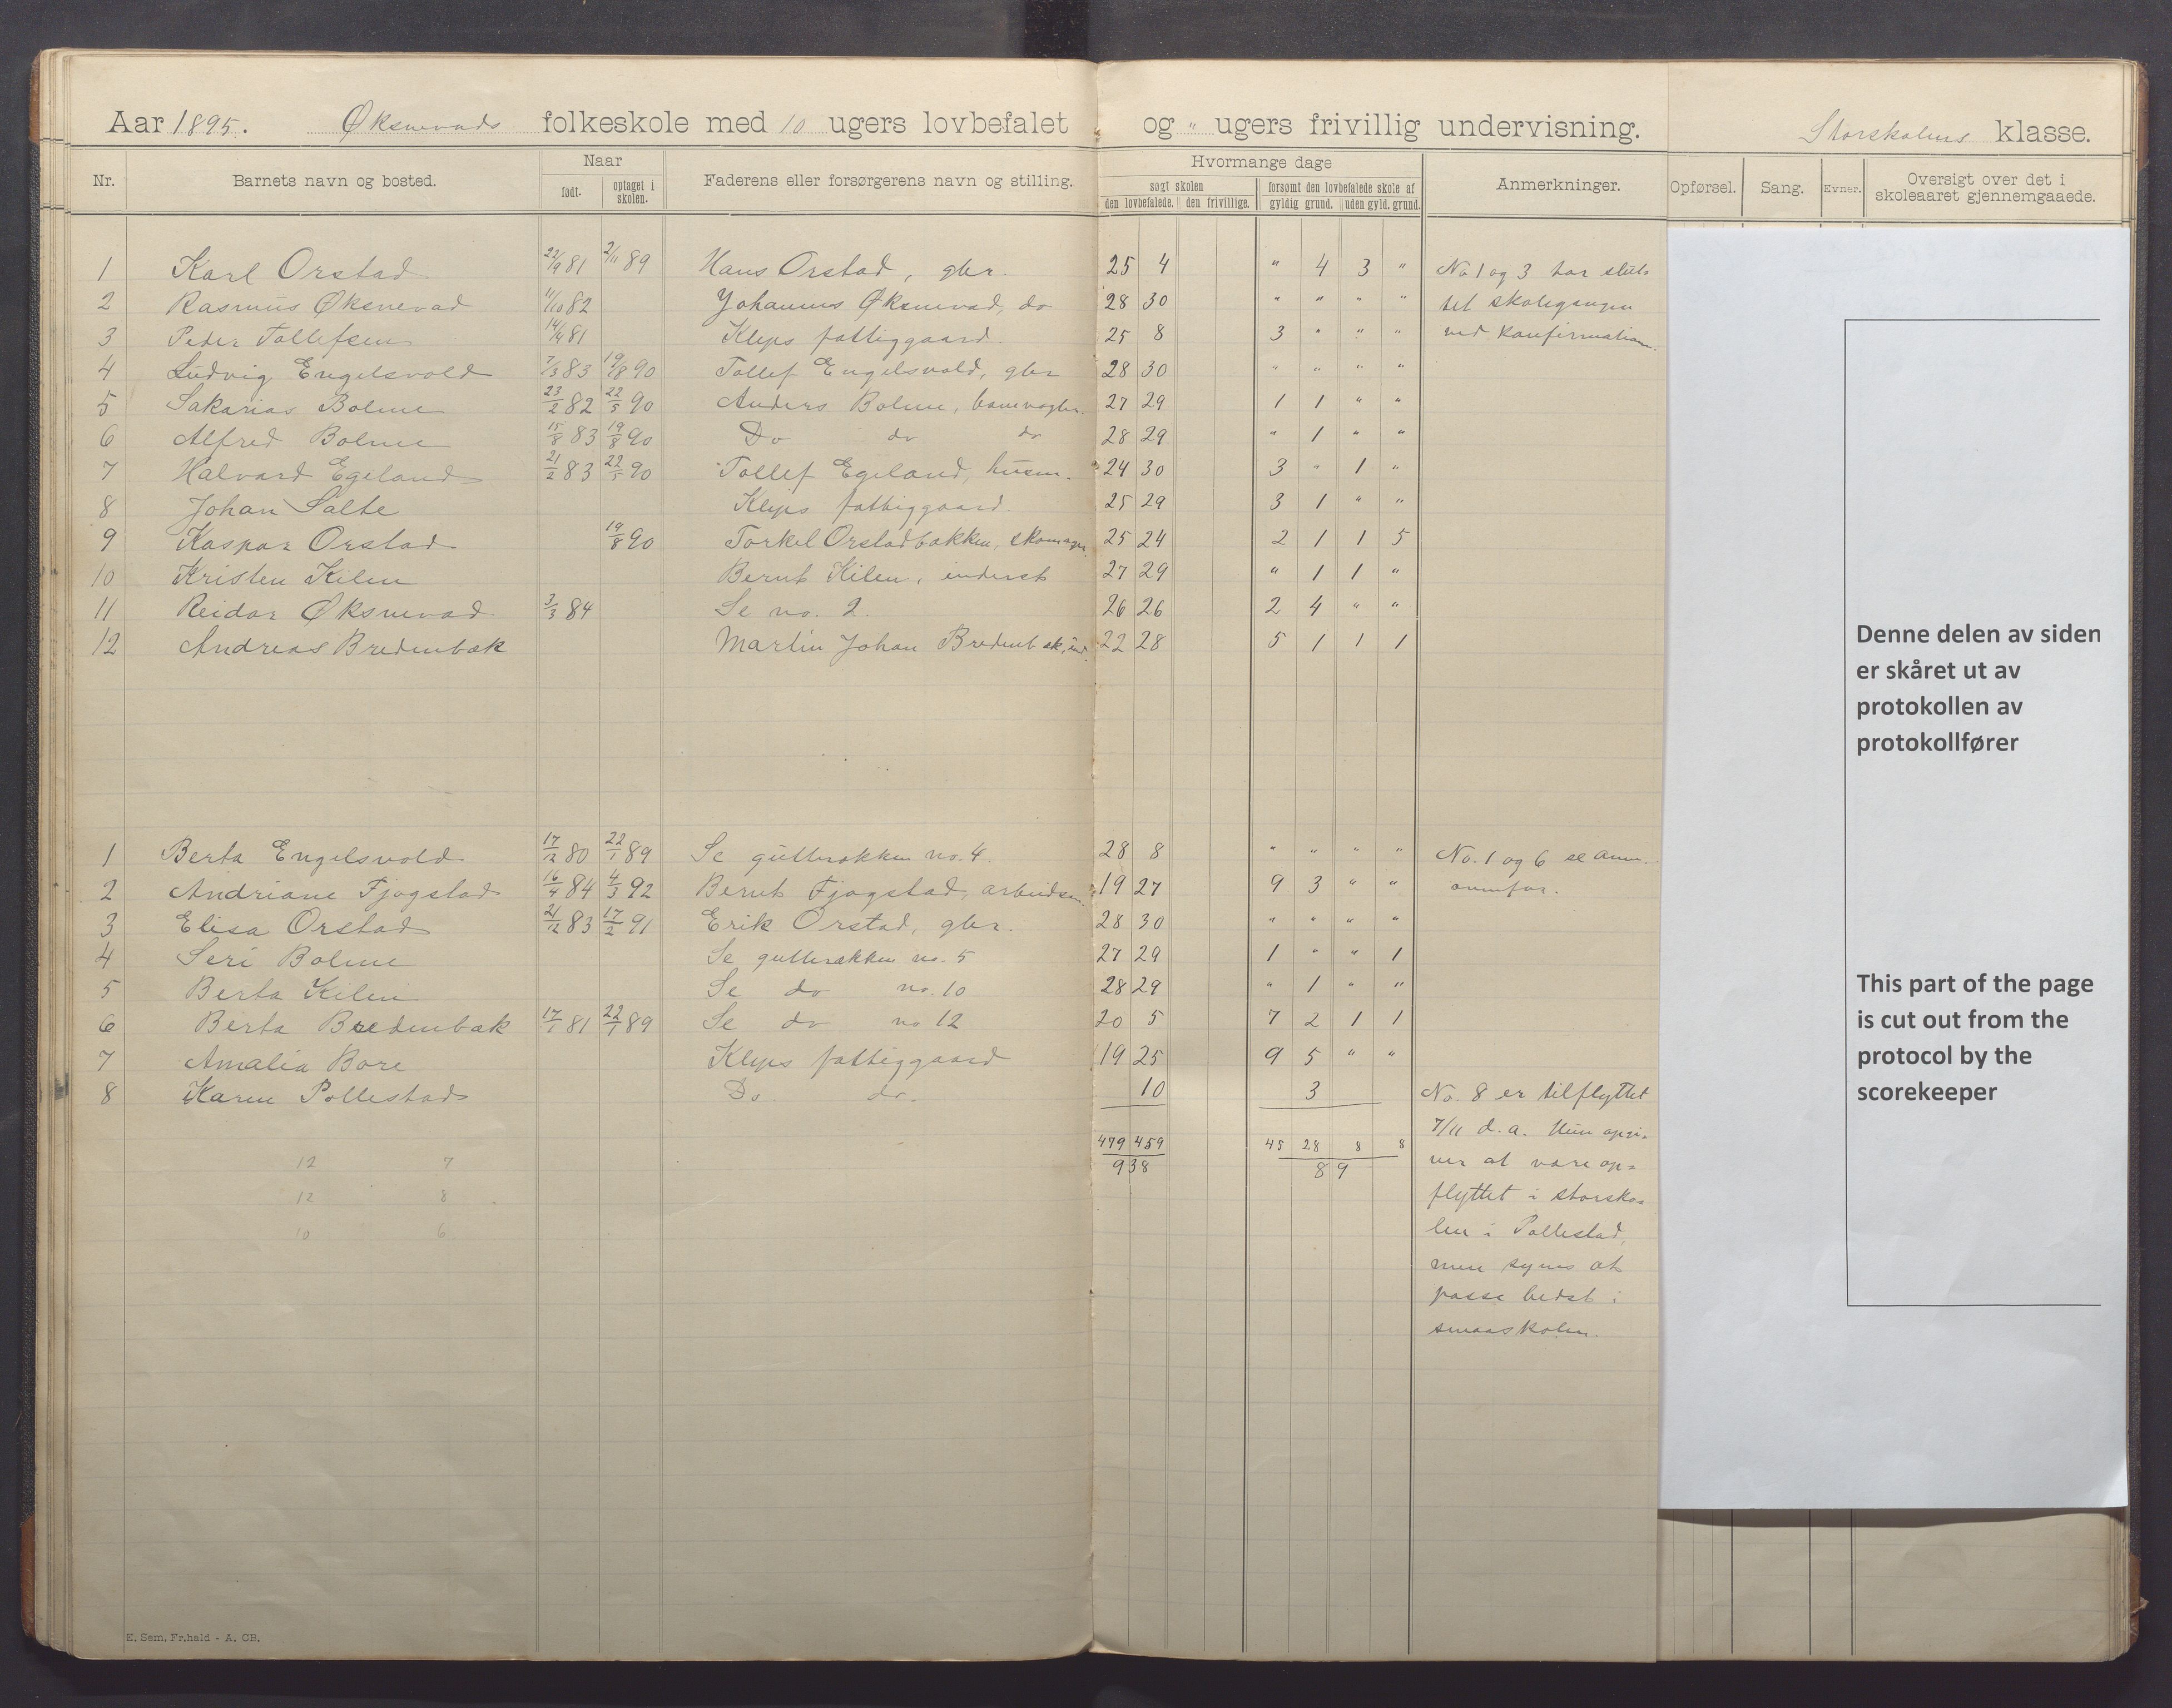 Aar 1895. Øksnevads folkeskole med 10 ugers lovbefalet og " ugers frivillig undervisning. Storskolens klasse.
Nr. Barnets navn og bosted. Naar født. optaget i skolen. Faderens eller forsørgerens navn og stilling. Hvormange dage søgt skolen den lovbefalede. den frivillige. forsømt den lovbefalede skole af gyldig grund. uden gyld. grund. Anmerkninger. Opførsel. Sang. Evner. Oversigt over det i skoleaaret gjennemgaaede.
1 Karl Orstad 22/9 81 2/11 89 Hans Orstad, gbr. 25 4 " 4 3 " No 1 og 3 har slut-
2 Rasmus Øksnevad 11/10 82 Johannes Øksnevad, do 28 30 " " " " tet skolegangen
3 Peder Tollefsen 14/4 81 Kleps fattiggaard. 25 8 3 " " " ved konfirmation.
4 Ludvig Engelsvold 7/3 83 19/8 90 Tollef Engelsvold, gbr 28 30 " " " "
5 Sakarias Bolme 23/2 82 22/5 90 Anders Bolme, banevogter. 27 29 1 1 " "
6 Alfred Bolme 15/8 83 19/8 90 Do do do 28 29 " 1 " "
7 Halvard Egeland 21/2 83 22/5 90 Tollef Egeland, husm. 24 30 3 " 1 "
8 Johan Salte Kleps fattiggaard. 25 29 3 1 " "
9 Kaspar Orstad 19/8 90 Torkel Orstadbakken, skomager. 25 24 2 1 1 5
10 Kristen Kilen Bernt Kilen, inderst 27 29 " 1 1 "
11 Reidar Øksnevad 3/3 84 Se no. 2. 26 26 2 4 " "
12 Andreas Bredenbæk Martin Johan Bredenbæk, ind. 22 28 5 1 1 1
1 Berta Engelsvold 17/12 80 22/1 89 Se gutterækken no. 4 28 8 " " " " No. 1 og 6 se anm.
2 Andriane Fjogstad 16/4 84 4/5 92 Bernt Fjogstad, arbeidsm. 19 27 9 3 " " ovenfor.
3 Elisa Orstad 21/12 83 17/2 91 Erik Orstad, gbr. 28 30 " " " "
4 Seri Bolme Se gutterækken no. 5 27 29 1 " " 1
5 Berta Kilen Se do no. 10 28 29 " 1 " "
6 Berta Bredenbæk 17/1 81 22/1 89 Se do no 12 20 5 7 2 1 1
7 Amalia Bore Kleps fattiggaard 19 25 9 5 " "
8 Karen Pollestad Do. do. 10 3 No. 8 er tilflyttet
479 459 45 28 8 8 7/11 d. a. Hun opgi-
12 7 938 89 ver at være op-
12 8 flyttet i storsko-
10 6 len i Pollestad,
men synes at
passe bedst i
smaaskolen.
Denne delen av siden
er skåret ut av
protokollen av
protokollfører
This part of the page
is cut out from the
protocol by the
scorekeeper
E. Sem. Fr.hald - A. CB.